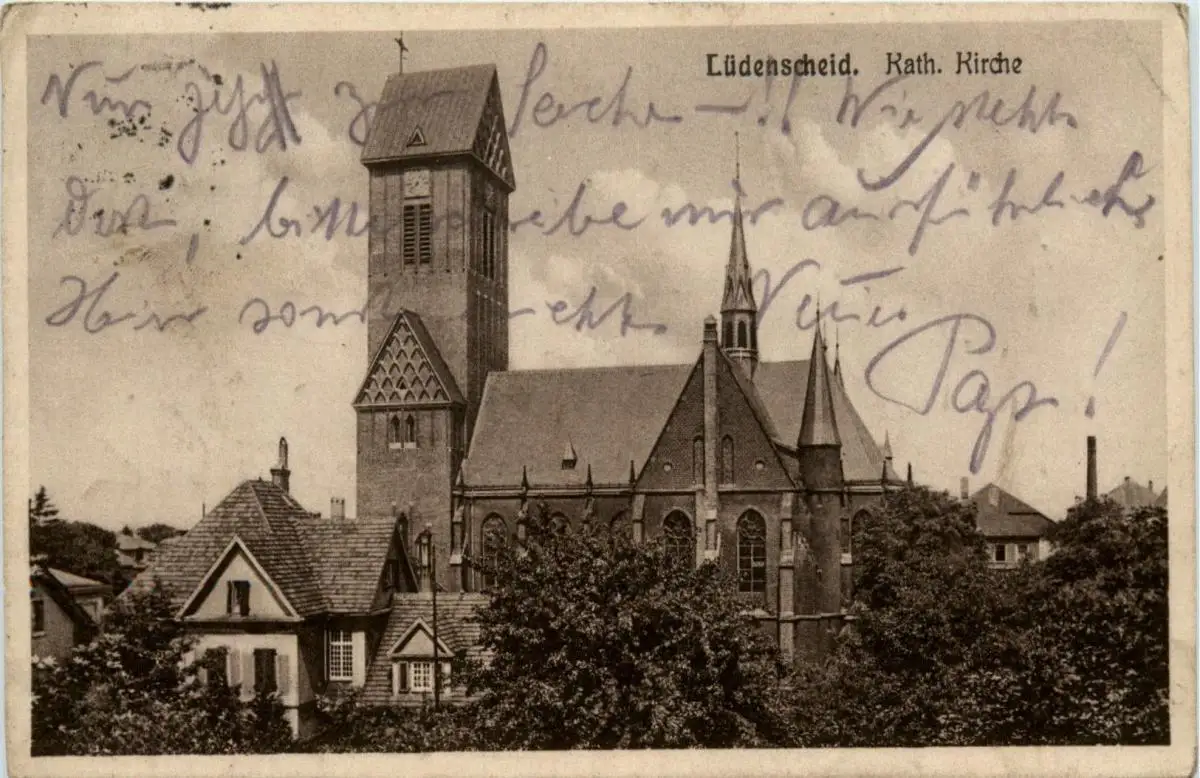 Lüdenscheid. Kath. Kirche
Nun jetzt zur Sache –!! Wie steht's
dort, bitte schreibe mir ausführlicher
Hier sonst nichts Neues
Papa!